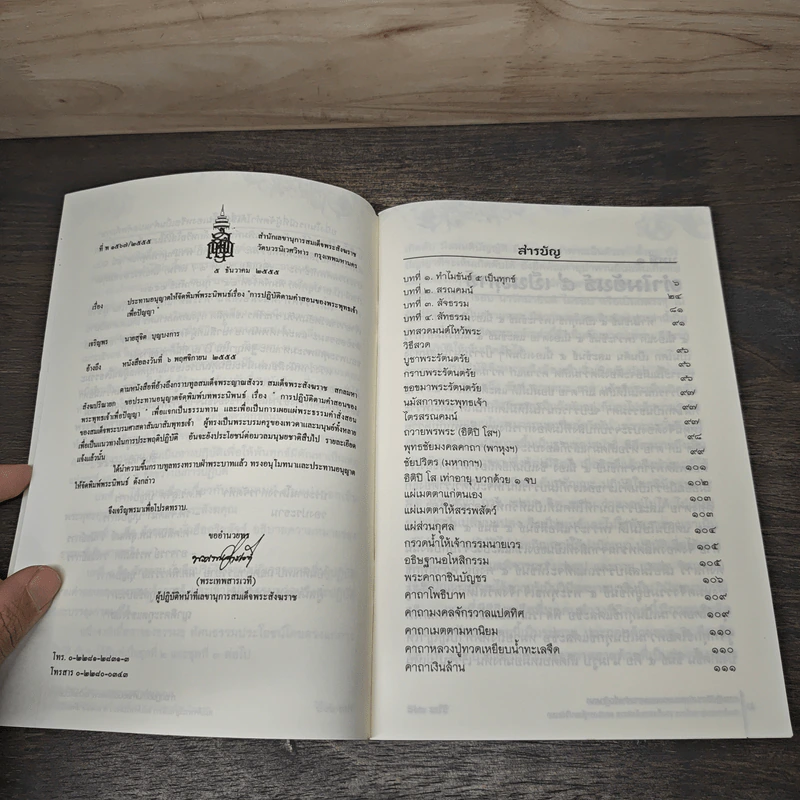 ที่ พ ๑๕๖๗/๒๕๕๕
สำนักเลขานุการสมเด็จพระสังฆราช
วัดบวรนิเวศวิหาร กรุงเทพมหานคร
๕ ธันวาคม ๒๕๕๕
เรื่อง ประทานอนุญาตให้จัดพิมพ์พระนิพนธ์เรื่อง "การปฏิบัติตามคำสอนของพระพุทธเจ้า
เพื่อปัญญา"
เจริญพร นายสุชิต บุญบงการ
อ้างถึง หนังสือลงวันที่ ๖ พฤศจิกายน ๒๕๕๕
ตามหนังสือที่อ้างถึงกราบทูลสมเด็จพระญาณสังวร สมเด็จพระสังฆราช สกลมหา
สังฆปริณายก ขอประทานอนุญาตจัดพิมพ์บทพระนิพนธ์ เรื่อง " การปฏิบัติตามคำสอนของ
พระพุทธเจ้าเพื่อปัญญา " เพื่อแจกเป็นธรรมทาน และเพื่อเป็นการเผยแผ่พระธรรมคำสั่งสอน
ของสมเด็จพระบรมศาสดาสัมมาสัมพุทธเจ้า ผู้ทรงเป็นพระบรมครูของเทวดาและมนุษย์ทั้งหลาย
เพื่อเป็นแนวทางในการประพฤติปฏิบัติ อันจะยังประโยชน์ต่อมวลมนุษยชาติสืบไป รายละเอียด
แจ้งแล้วนั้น
ได้นำความขึ้นกราบทูลทรงทราบฝ่าพระบาทแล้ว ทรงอนุโมทนาและประทานอนุญาต
ให้จัดพิมพ์พระนิพนธ์ ดังกล่าว
จึงเจริญพรมาเพื่อโปรดทราบ
ขออำนวยพร
(พระเทพสารเวที)
ผู้ปฏิบัติหน้าที่เลขานุการสมเด็จพระสังฆราช
โทร. ๐-๒๒๘๑-๒๘๓๑-๓
โทรสาร ๐-๒๒๘๐-๐๓๔๓
สารบัญ
บทที่ ๑. ทำไมขันธ์ ๕ เป็นทุกข์ ๖
บทที่ ๒. สรณคมน์ ๒๔
บทที่ ๓. สัจธรรม ๘๑
บทที่ ๔. สัทธรรม ๙๑
บทสวดมนต์ไหว้พระ
วิธีสวด ๙๖
บูชาพระรัตนตรัย ๙๖
กราบพระรัตนตรัย ๙๖
ขอขมาพระรัตนตรัย ๙๗
นมัสการพระพุทธเจ้า ๙๗
ไตรสรณคมน์ ๙๗
ถวายพรพระ (อิติปิ โสฯ) ๙๘
พุทธชัยมงคลคาถา (พาหุงฯ) ๙๙
ชัยปริตร (มหากาฯ) ๑๐๑
อิติปิ โส เท่าอายุ บวกด้วย ๑ จบ ๑๐๒
แผ่เมตตาแก่ตนเอง ๑๐๓
แผ่เมตตาให้สรรพสัตว์ ๑๐๓
แผ่ส่วนกุศล ๑๐๔
กรวดน้ำให้เจ้ากรรมนายเวร ๑๐๕
อธิษฐานอโหสิกรรม ๑๐๕
พระคาถาชินบัญชร ๑๐๖
คาถาโพธิบาท ๑๐๙
คาถามงคลจักรวาลแปดทิศ ๑๐๙
คาถาเมตตามหานิยม ๑๑๐
คาถาหลวงปู่ทวดเหยียบน้ำทะเลจืด ๑๑๐
คาถาเงินล้าน ๑๑๑